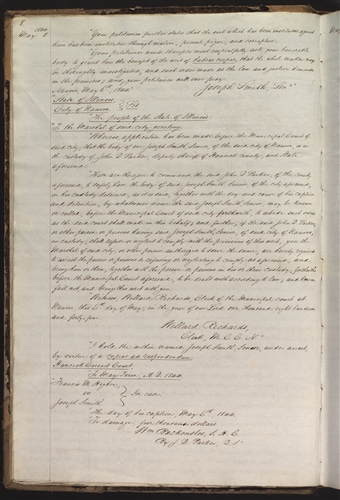 8
May 1844
"Your petitioner further states that the writ which has been instituted against
him has been instituted through malice, private pique, and corruption.
"Your petitioner would therefore most respectfully ask your honorable
body, to grant him the benefit of the writ of habeas corpus, that the whole matter may
be thoroughly investigated, and such order made as the law and justice demand
in the premises; and your petitioner will ever pray.
Nauvoo, May 6th 1844. Joseph Smith, Senr
State of Illinois
City of Nauvoo } Sct
The People of the State of Illinois
To the Marshal of said city, greeting:
Whereas application has been made before the Municipal Court of
said city, that the body of one Joseph Smith, Senior, of the said city of Nauvoo, is in
the custody of John D. Parker, deputy sheriff of Hancock county, and State
aforesaid:
These are therefore to command the said John D. Parker, of the county
aforesaid, to safely have the body of said Joseph Smith, Senior, of the city aforesaid,
in his custody detained, as it is said, together with the day and cause of his caption
and detention, by whatsoever name the said Joseph Smith, Senior, may be known
or called, before the Municipal Court of said city forthwith, to abide such order
as the said court shall make in this behalf; and further, if the said John D. Parker,
or other person or persons having said Joseph Smith, Senior, of said city of Nauvoo,
in custody, shall refuse or neglect to comply with the provisions of this writ, you, the
Marshal of said city, or other person authorized to serve the same, are hereby required
to arrest the person or persons so refusing or neglecting to comply as aforesaid, and
bring him or them, together with the person or persons in his or their custody, forthwith
before the Municipal Court aforesaid, to be dealt with according to law; and herein
fail not, and bring this writ with you.
Witness Willard Richards, Clerk of the Municipal court at
Nauvoo, this 6th day of May, in the year of our Lord one thousand eight hundred
and forty-four.
Willard Richards,
Clerk, M. C. C. N."
"I hold the within named Joseph Smith, Senior, under arrest,
by virtue of a capias ad respondendum.
Hancock Circuit Court
To May Term, A. D. 1844.
Francis M. Higbee
vs } In case.
Joseph Smith
The day of his caption, May 6th 1844.
To damage: five thousand dollars
Wm Backenstos, S. H. C.
By J. D. Parker, D. S."